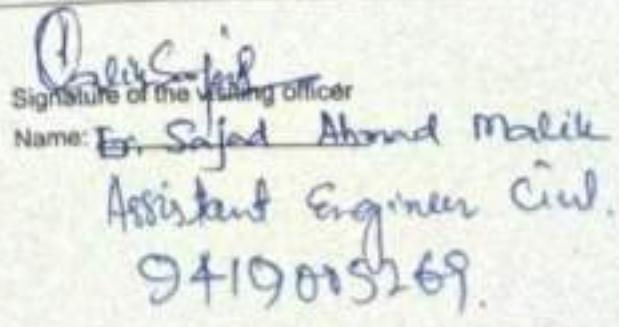 Signature of the visiting officer
Name: Er. Sajad Ahmad Malik
Assistant Engineer Civil.
9419005269.